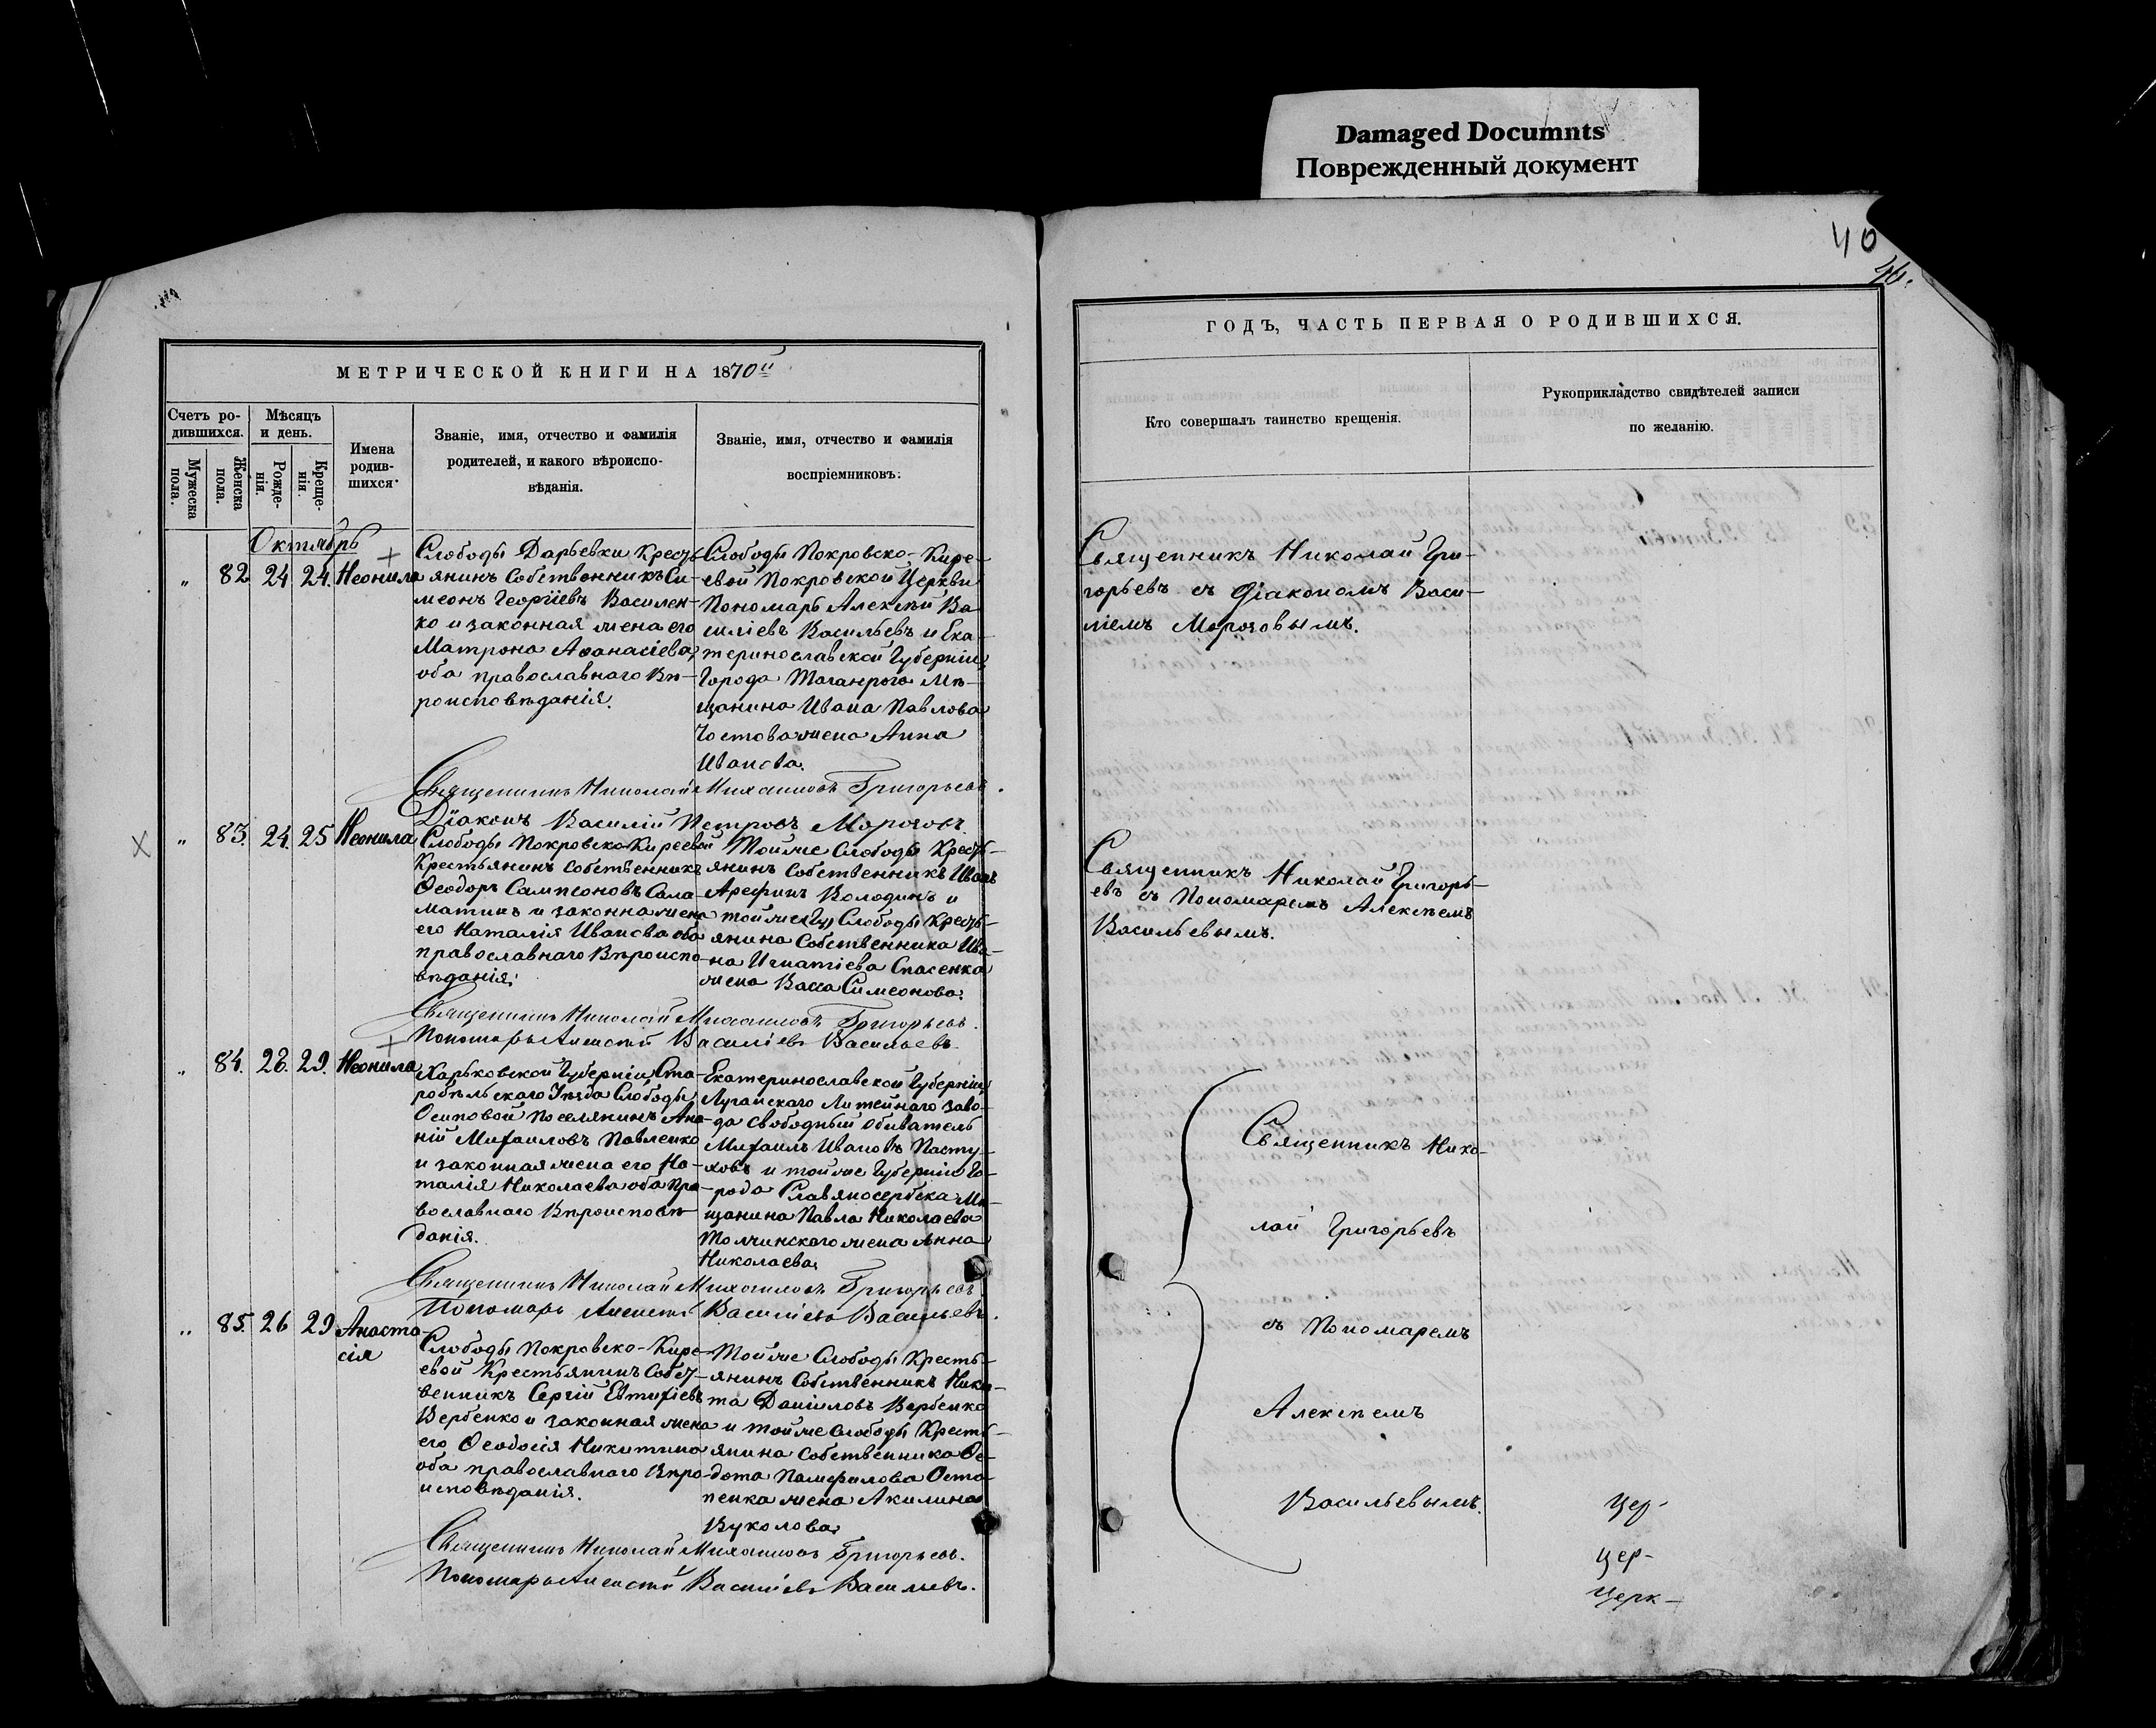 Damaged Documnts
Поврежденный документ
40
МЕТРИЧЕСКОЙ КНИГИ НА 1870й
Счетъ ро-
дившихся.
Мужеска
пола.
Женска
пола.
Мѣсяцъ
и день.
Рожде-
нія.
Креще-
нія.
Имена
родив-
шихся.
Званіе, имя, отчество и фамилія
родителей, и какого вѣроиспо-
вѣданія.
Званіе, имя, отчество и фамилія
воспріемниковъ.
Октябрь
„ 82 24 24. Неонила
Слободы Дарьевки Кресть
янинъ Собственникъ Си-
меонъ Георгіевъ Василен-
ко и законная жена его
Матрона Аѳанасіева,
оба православнаго Вѣ-
роисповѣданія.
Слободы Покровско-Кире-
евой Покровской Церкви
Пономарь Алексѣй Ва
силіевъ Васильевъ и Ека-
теринославской Губерніи,
Города Таганрога Мѣ-
щанина Ивана Павлова
жена Анна
Иванова.
Священникъ Николай Михаиловъ Григорьевъ.
Діаконъ Василій Петровъ Морозовъ
„ 83. 24. 25 Неонила
Слободы Покровско-Киреевой
Крестьянинъ Собственникъ
Ѳеодоръ Сампсоновъ Сала-
матинъ и законна жена
его Наталія Иванова оба
православнаго Вѣроиспо-
вѣданія.
Тойже Слободы Кресть-
янинъ Собственникъ Иванъ
Арефинъ Володинъ и
тойже Слободы Кресть-
янина Собственника Ива-
на Игнатіева Спасенка
жена Васса Симеонова.
Священникъ Николай Михаиловъ Григорьевъ.
Пономарь Алексѣй Василіевъ Васильевъ
„ 84. 28. 29. Неонила
Харьковской Губерніи, Ста-
робѣльскаго Уѣзда Слободы
Осиновой Поселянинъ Ана-
ній Михаиловъ Павленко
и законная жена его На-
талія Николаева оба Пра-
вославнаго Вѣроисповѣ-
данія.
Екатеринославской Губерніи,
Луганскаго Литейнаго заво-
да свободный Обыватель
Михаилъ Ивановъ Пасту-
ховъ и тойже Губерніи Го-
рода Славяносербска Мѣ-
щанина Павла Николаева
Толчинскаго жена Анна
Николаева.
Священникъ Николай Михаиловъ Григорьевъ
Пономарь Алексѣй Василіевъ Васильевъ.
„ 85. 26 29 Анаста-
сія
Слободы Покровско-Кире-
евой Крестьянинъ Собст-
венникъ Сергій Евтихіевъ
Вербенко и законная жена
его Ѳеодосія Никитина
оба православнаго Вѣро-
исповѣданія.
Тойже Слободы Кресть-
янинъ Собственникъ Ники-
та Даніиловъ Вербенко
и тойже Слободы Кресть-
янина Собственника Ѳе-
дота Памфилова Оста-
пенка жена Акилина
Вуколова.
Священникъ Николай Михаиловъ Григорьевъ.
Пономарь Алексѣй Василіевъ Васильевъ.
ГОДЪ, ЧАСТЬ ПЕРВАЯ О РОДИВШИХСЯ.
Кто совершалъ таинство крещенія.
Рукоприкладство свидѣтелей записи
по желанію.
Священникъ Николай Гри-
горьевъ съ Діакономъ Васи-
ліемъ Морозовымъ.
Священникъ Николай Григорь-
евъ съ Пономаремъ Алексѣемъ
Васильевымъ.
Священникъ Нико-
лай Григорьевъ
съ Пономаремъ
Алексѣемъ
Васильевымъ.
Цер-
Цер-
Церк-